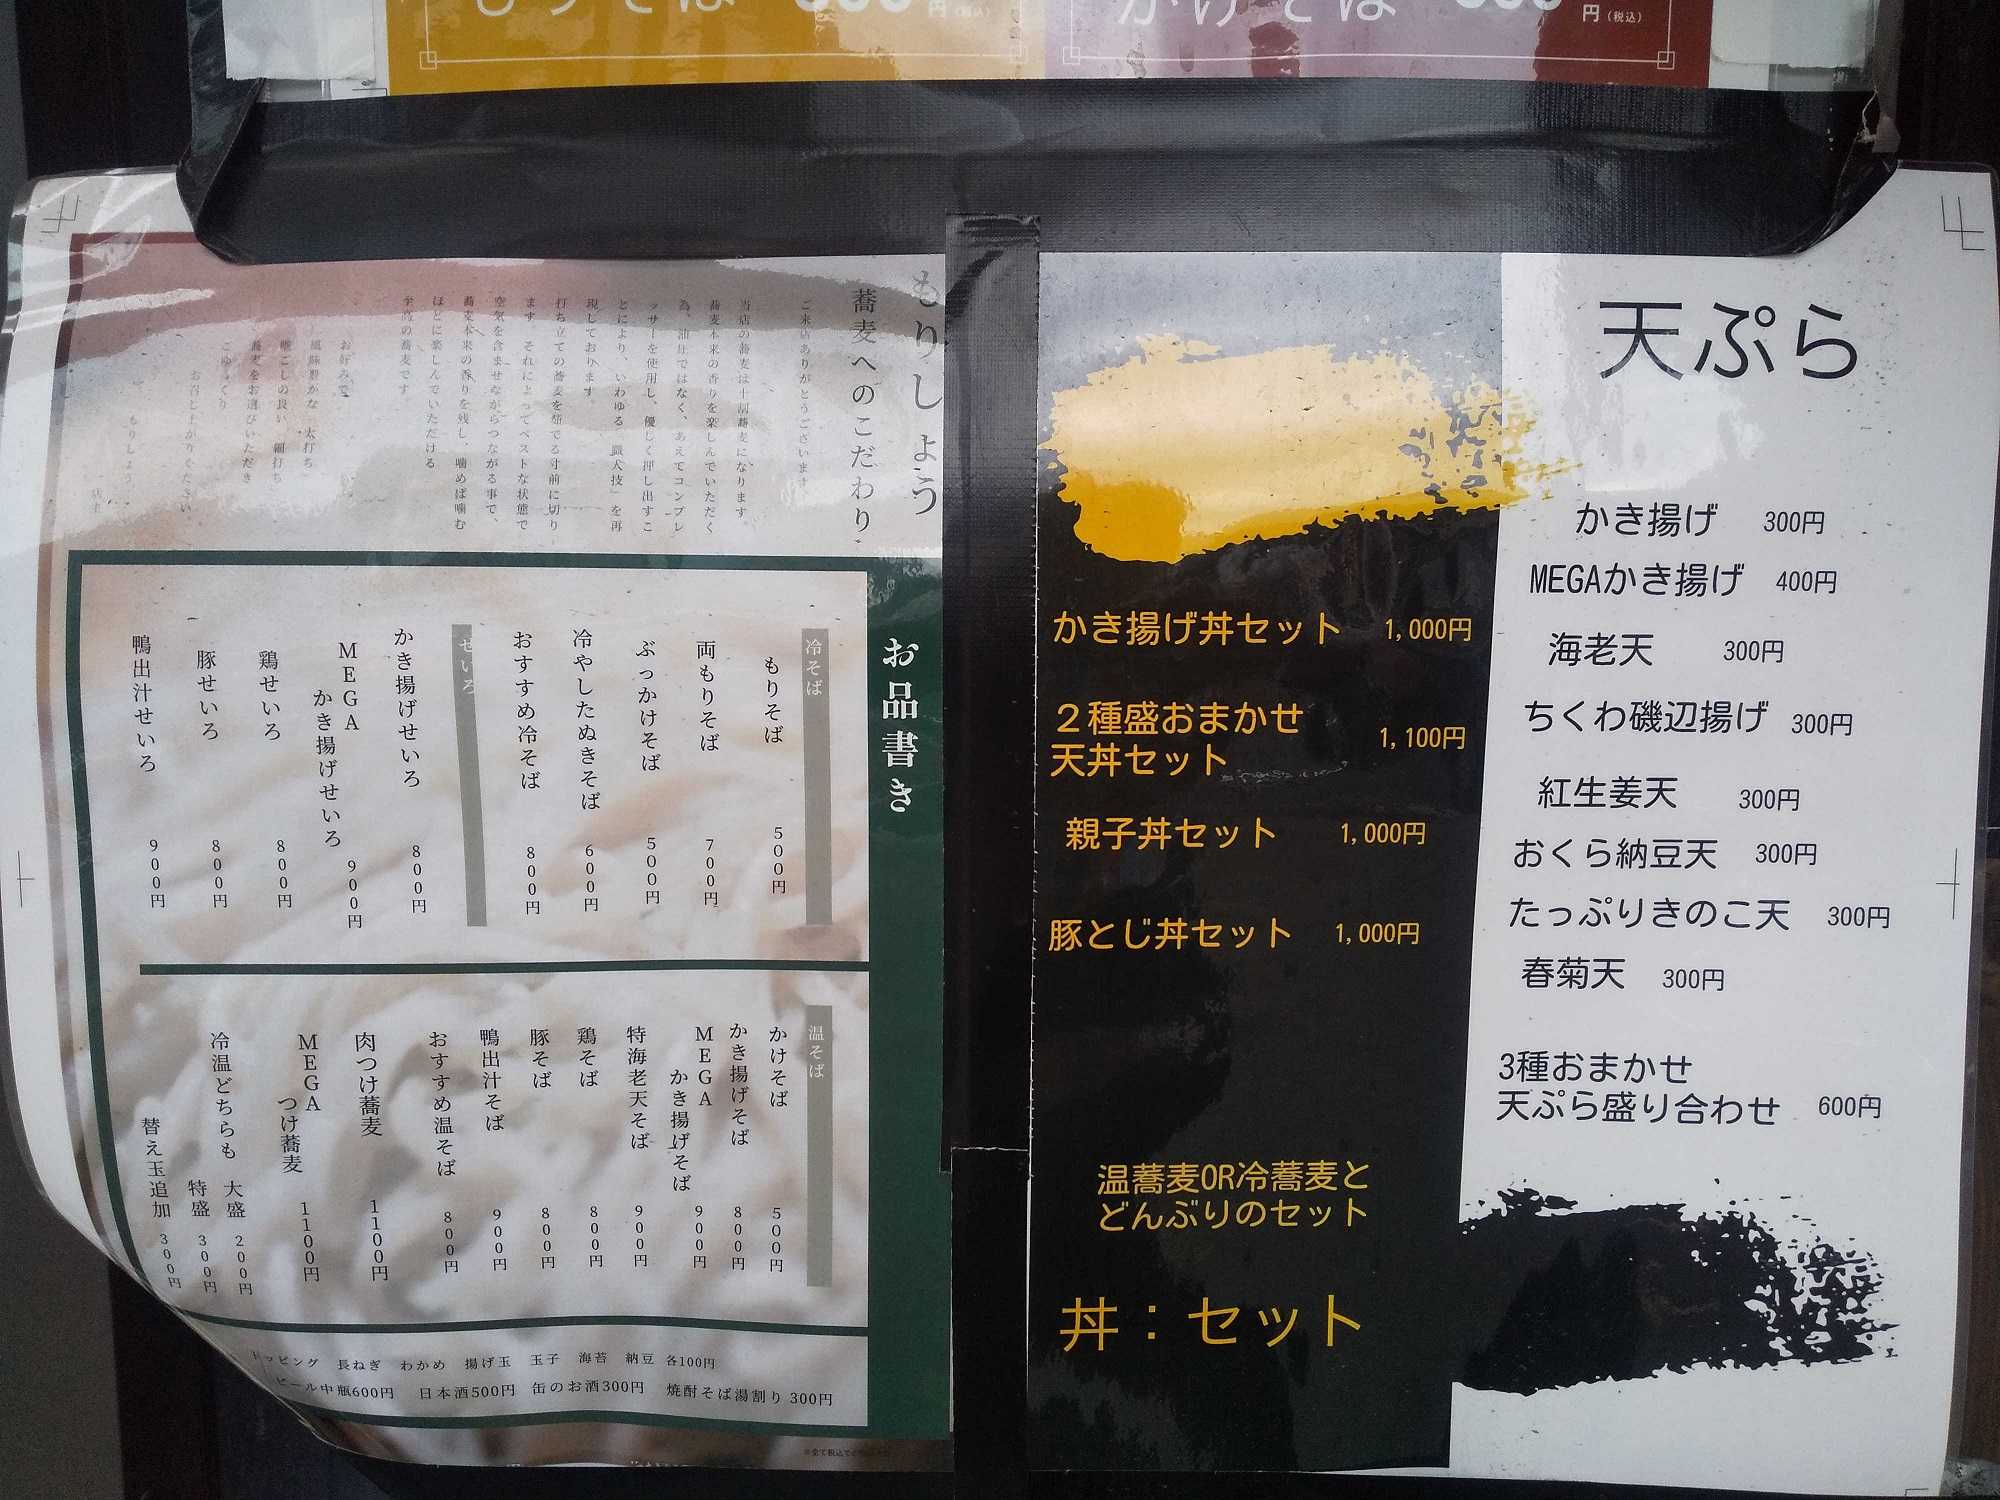 もりそば
円(税込)
かけそば
円(税込)
もりしょう
蕎麦へのこだわり
ご来店ありがとうございます。
当店の蕎麦は十割蕎麦になります。
蕎麦本来の香りを楽しんでいただく
為、油圧ではなく、あえてコンプレ
ッサーを使用し、優しく押し出すこ
とにより、いわゆる「職人技」を再
現しております。
打ち立ての蕎麦を茹でる寸前に切り
ます。それによってベストな状態で
空気を含ませながらつながる事で、
蕎麦本来の香りを残し、噛めば噛む
ほどに楽しんでいただける
至高の蕎麦です
お好みで
風味豊かな「太打ち」
喉ごしの良い「細打ち」
蕎麦をお選びいただき
ごゆっくり
お召し上がりください。
もりしょう
店主
お品書き
冷そば
もりそば 500円
両もりそば 700円
ぶっかけそば 500円
冷やしたぬきそば 600円
おすすめ冷そば 800円
せいろ
かき揚げせいろ 800円
MEGA
かき揚げせいろ 900円
鶏せいろ 800円
豚せいろ 800円
鴨出汁せいろ 900円
温そば
かけそば 500円
かき揚げそば 800円
MEGA
かき揚げそば 900円
特海老天そば 900円
鶏そば 800円
豚そば 800円
鴨出汁そば 900円
おすすめ温そば 800円
肉つけ蕎麦 1100円
MEGA
つけ蕎麦 1100円
冷温どちらも 大盛 200円
特盛 300円
替え玉追加 300円
トッピング 長ねぎ わかめ 揚げ玉 玉子 海苔 納豆 各100円
ビール中瓶600円 日本酒500円 缶のお酒300円 焼酎そば湯割り300円
かき揚げ丼セット 1,000円
２種盛おまかせ
天丼セット 1,100円
親子丼セット 1,000円
豚とじ丼セット 1,000円
温蕎麦OR冷蕎麦と
どんぶりのセット
丼：セット
天ぷら
かき揚げ 300円
MEGAかき揚げ 400円
海老天 300円
ちくわ磯辺揚げ 300円
紅生姜天 300円
おくら納豆天 300円
たっぷりきのこ天 300円
春菊天 300円
3種おまかせ
天ぷら盛り合わせ 600円